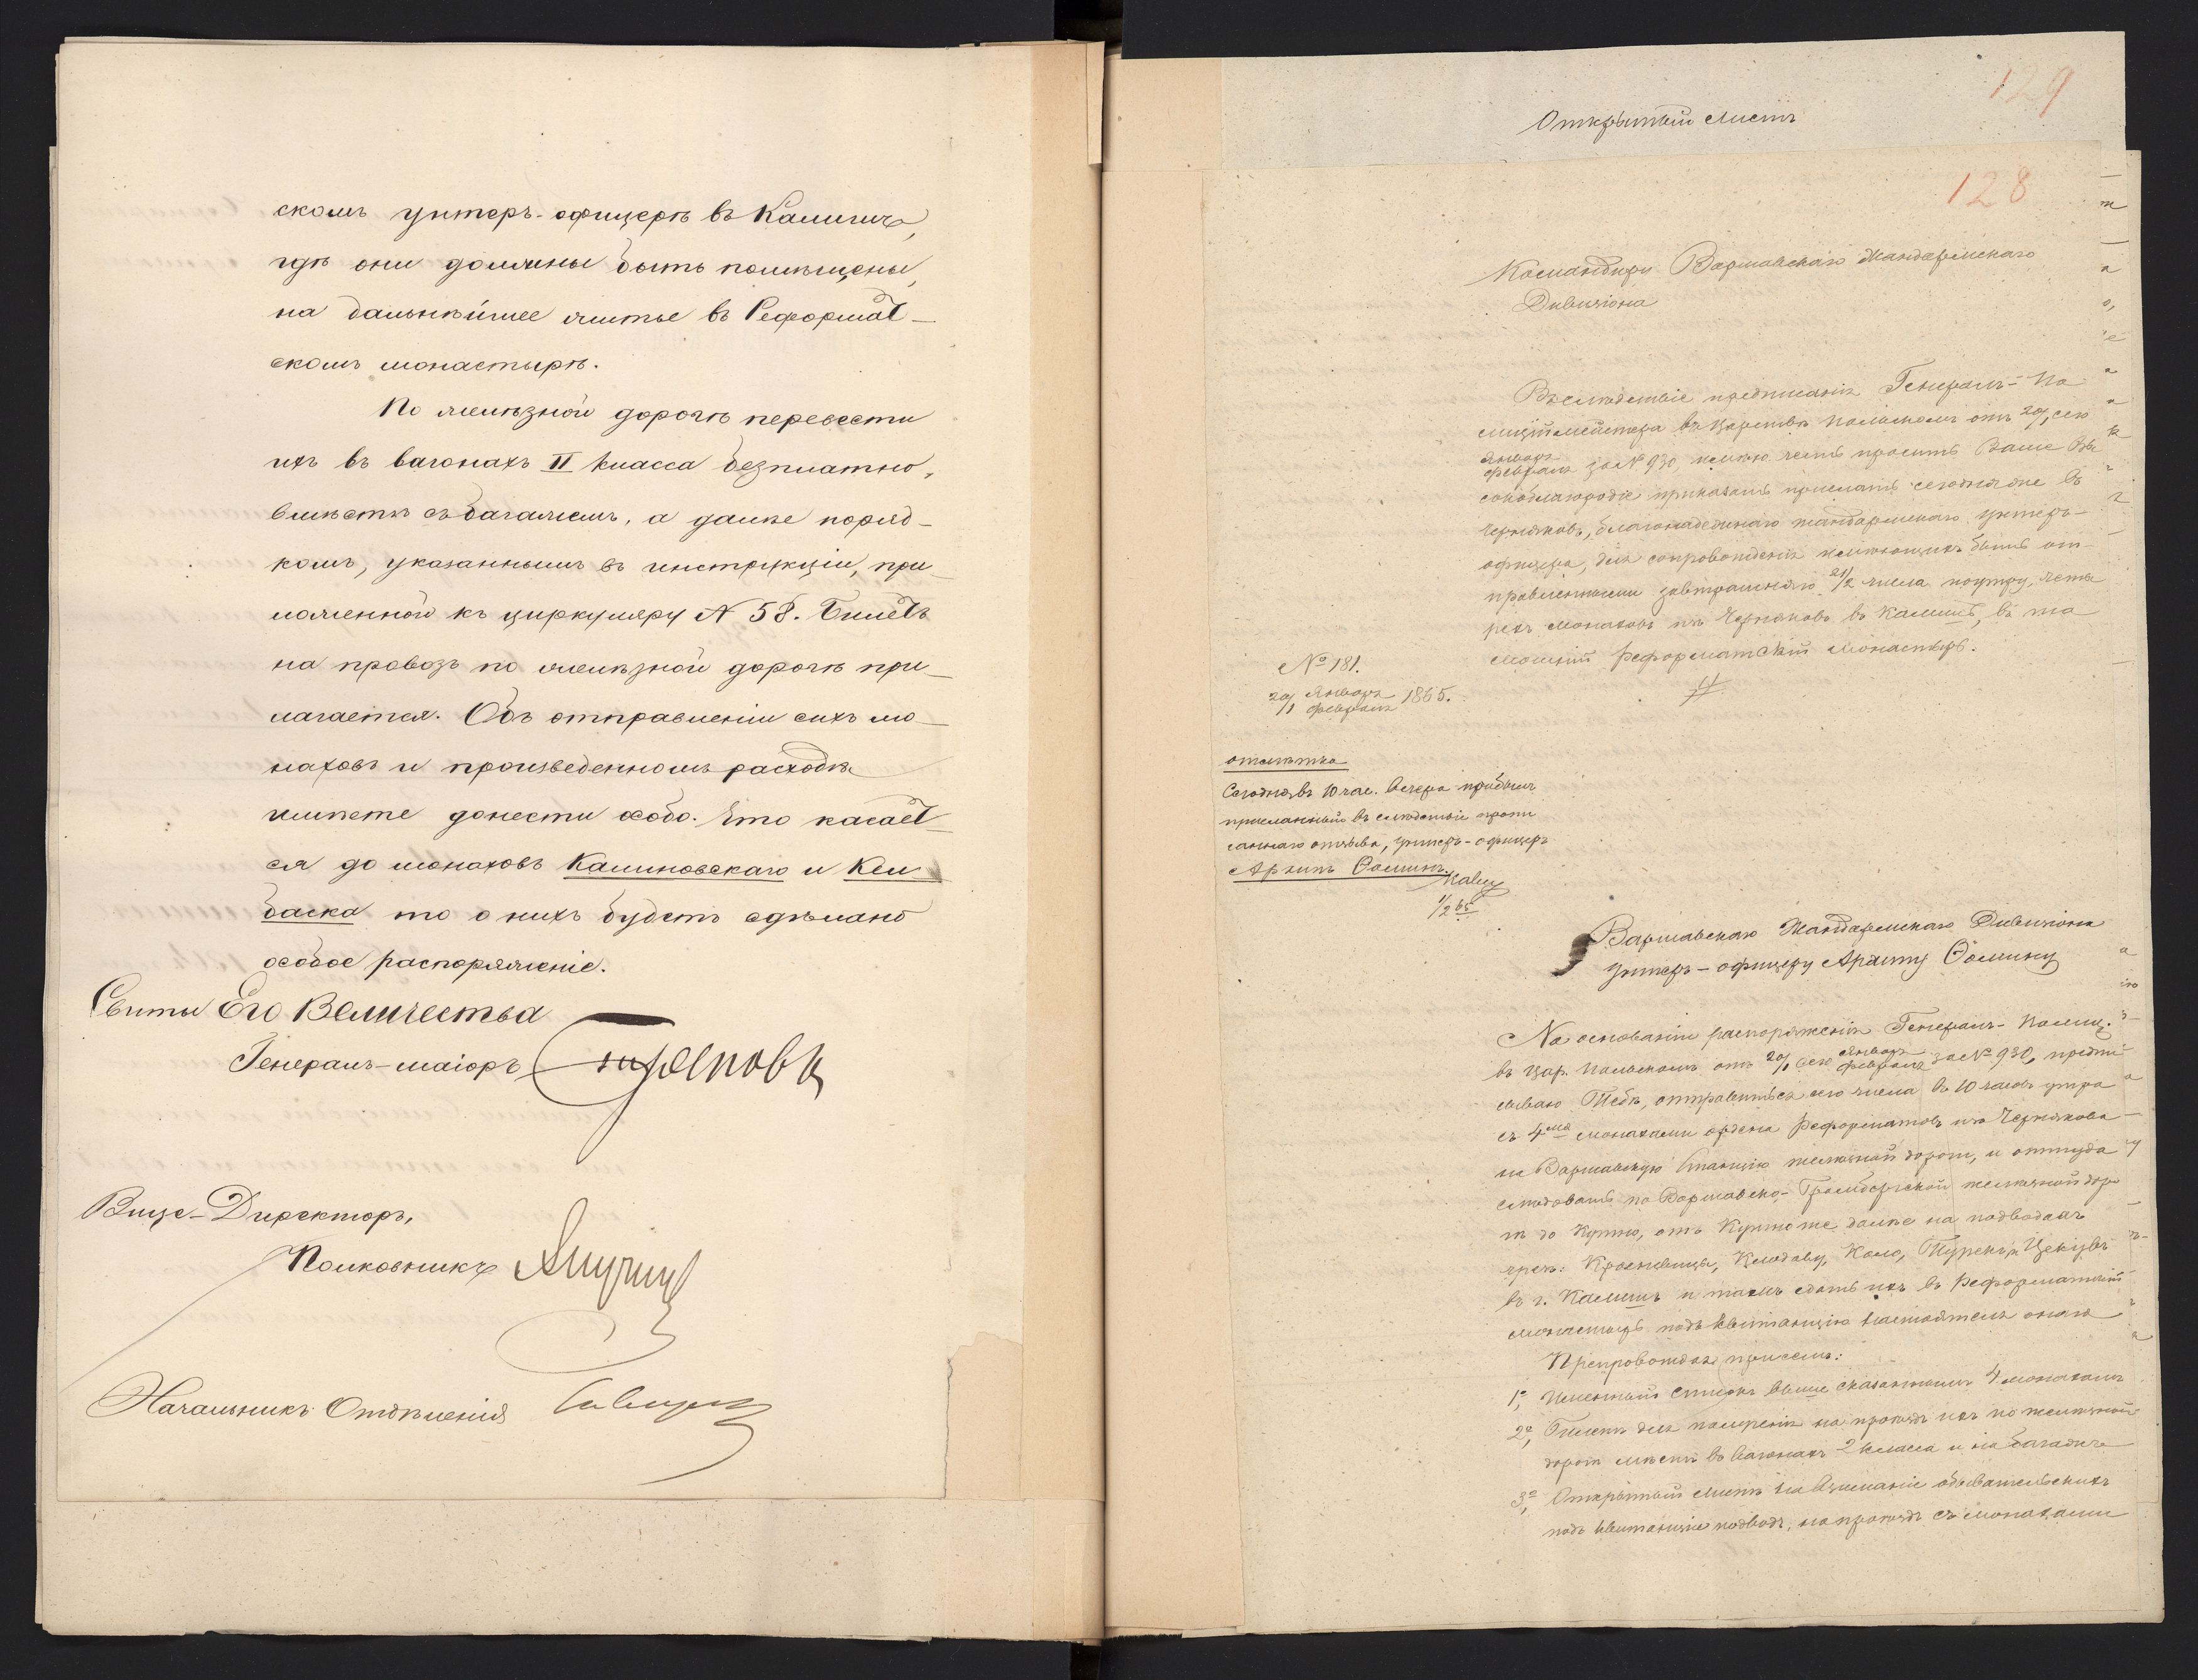 скомъ унтеръ-офицерѣ въ Калишъ,
гдѣ они должны быть помѣщены,
на дальнѣйшее житье въ Реформат-
скомъ монастырѣ.
По желѣзной дорогѣ перевести
ихъ въ вагонахъ II класса безплатно,
вмѣстѣ съ багажемъ, а далѣе поряд-
комъ, указаннымъ въ инструкціи, при-
ложенной къ циркуляру № 58. Билетъ
на провозъ по желѣзной дорогѣ при-
лагается. Объ отправленіи сихъ мо-
наховъ и произведенномъ расходѣ
имѣете донести особо. Что касает-
ся до монаховъ Калиновскаго и Кел-
баска то о нихъ будетъ сдѣлано
особое распоряженіе.
Свиты Его Величества
Генералъ-маіоръ
Вице-Директоръ,
Полковникъ
Начальникъ Отдѣленія
129
Открытый листъ
128
Командиру Варшавскаго Жандармскаго
Дивизіона
Вслѣдствіе предписанія Генералъ-По
лиціймейстера въ Царствѣ Польскомъ отъ 20/1 сего
Января
Февраля за № 930, имѣю честь просить Ваше Вы
сокоблагородіе приказать прислать сегодня же въ
Черняковъ, благонадежнаго жандармскаго унтеръ-
офицера, для сопровожденія имѣющихъ быть от-
правленными завтрашняго 21/2 числа поутру, четы
рехъ монаховъ изъ Чернякова въ Калишъ, въ та
мошній реформатскій монастырь.
№ 181.
20/1 Января
Февраля 1865.
отмѣтка
Сегодня въ 10 час. вечера прибылъ
присланный въ слѣдствіи пропи
саннаго отзыва, унтеръ-офицеръ
Архипъ Ѳоминъ.
1/2 65
Варшавскаго Жандармскаго Дивизіона
унтеръ-офицеру Архипу Ѳомину
На основаніи распоряженія Генералъ-Полиц.
въ Цар. Польскомъ отъ 20/1 сего Января
Февраля за № 930, предпи
сываю Тебѣ, отправиться сего числа въ 10 часовъ утра
съ 4мя монахами ордена Реформатовъ изъ Чернякова
на Варшавскую Станцію желѣзной дороги, и оттуда
слѣдовать по Варшавско-Бромбергской желѣзной доро
гѣ до Кутно, отъ Кутно же далѣе на подводахъ
чрезъ: Кросневице, Клодаву, Коло, Турекъ, Цекувъ
въ г. Калишъ и тамъ сдать ихъ въ Реформатскій
монастырь подъ квитанцію настоятеля онаго
Препровождая присемъ:
1е, Именный списокъ выше сказаннымъ 4 монахамъ
2е, Билетъ для полученія на проѣздъ ихъ по желѣзной
дорогѣ мѣстъ въ вагонахъ 2 класса и на багажъ
3е, Открытый листъ на взиманіе обывательскихъ
подъ квитанціи подводъ, на проѣздъ съ монахами